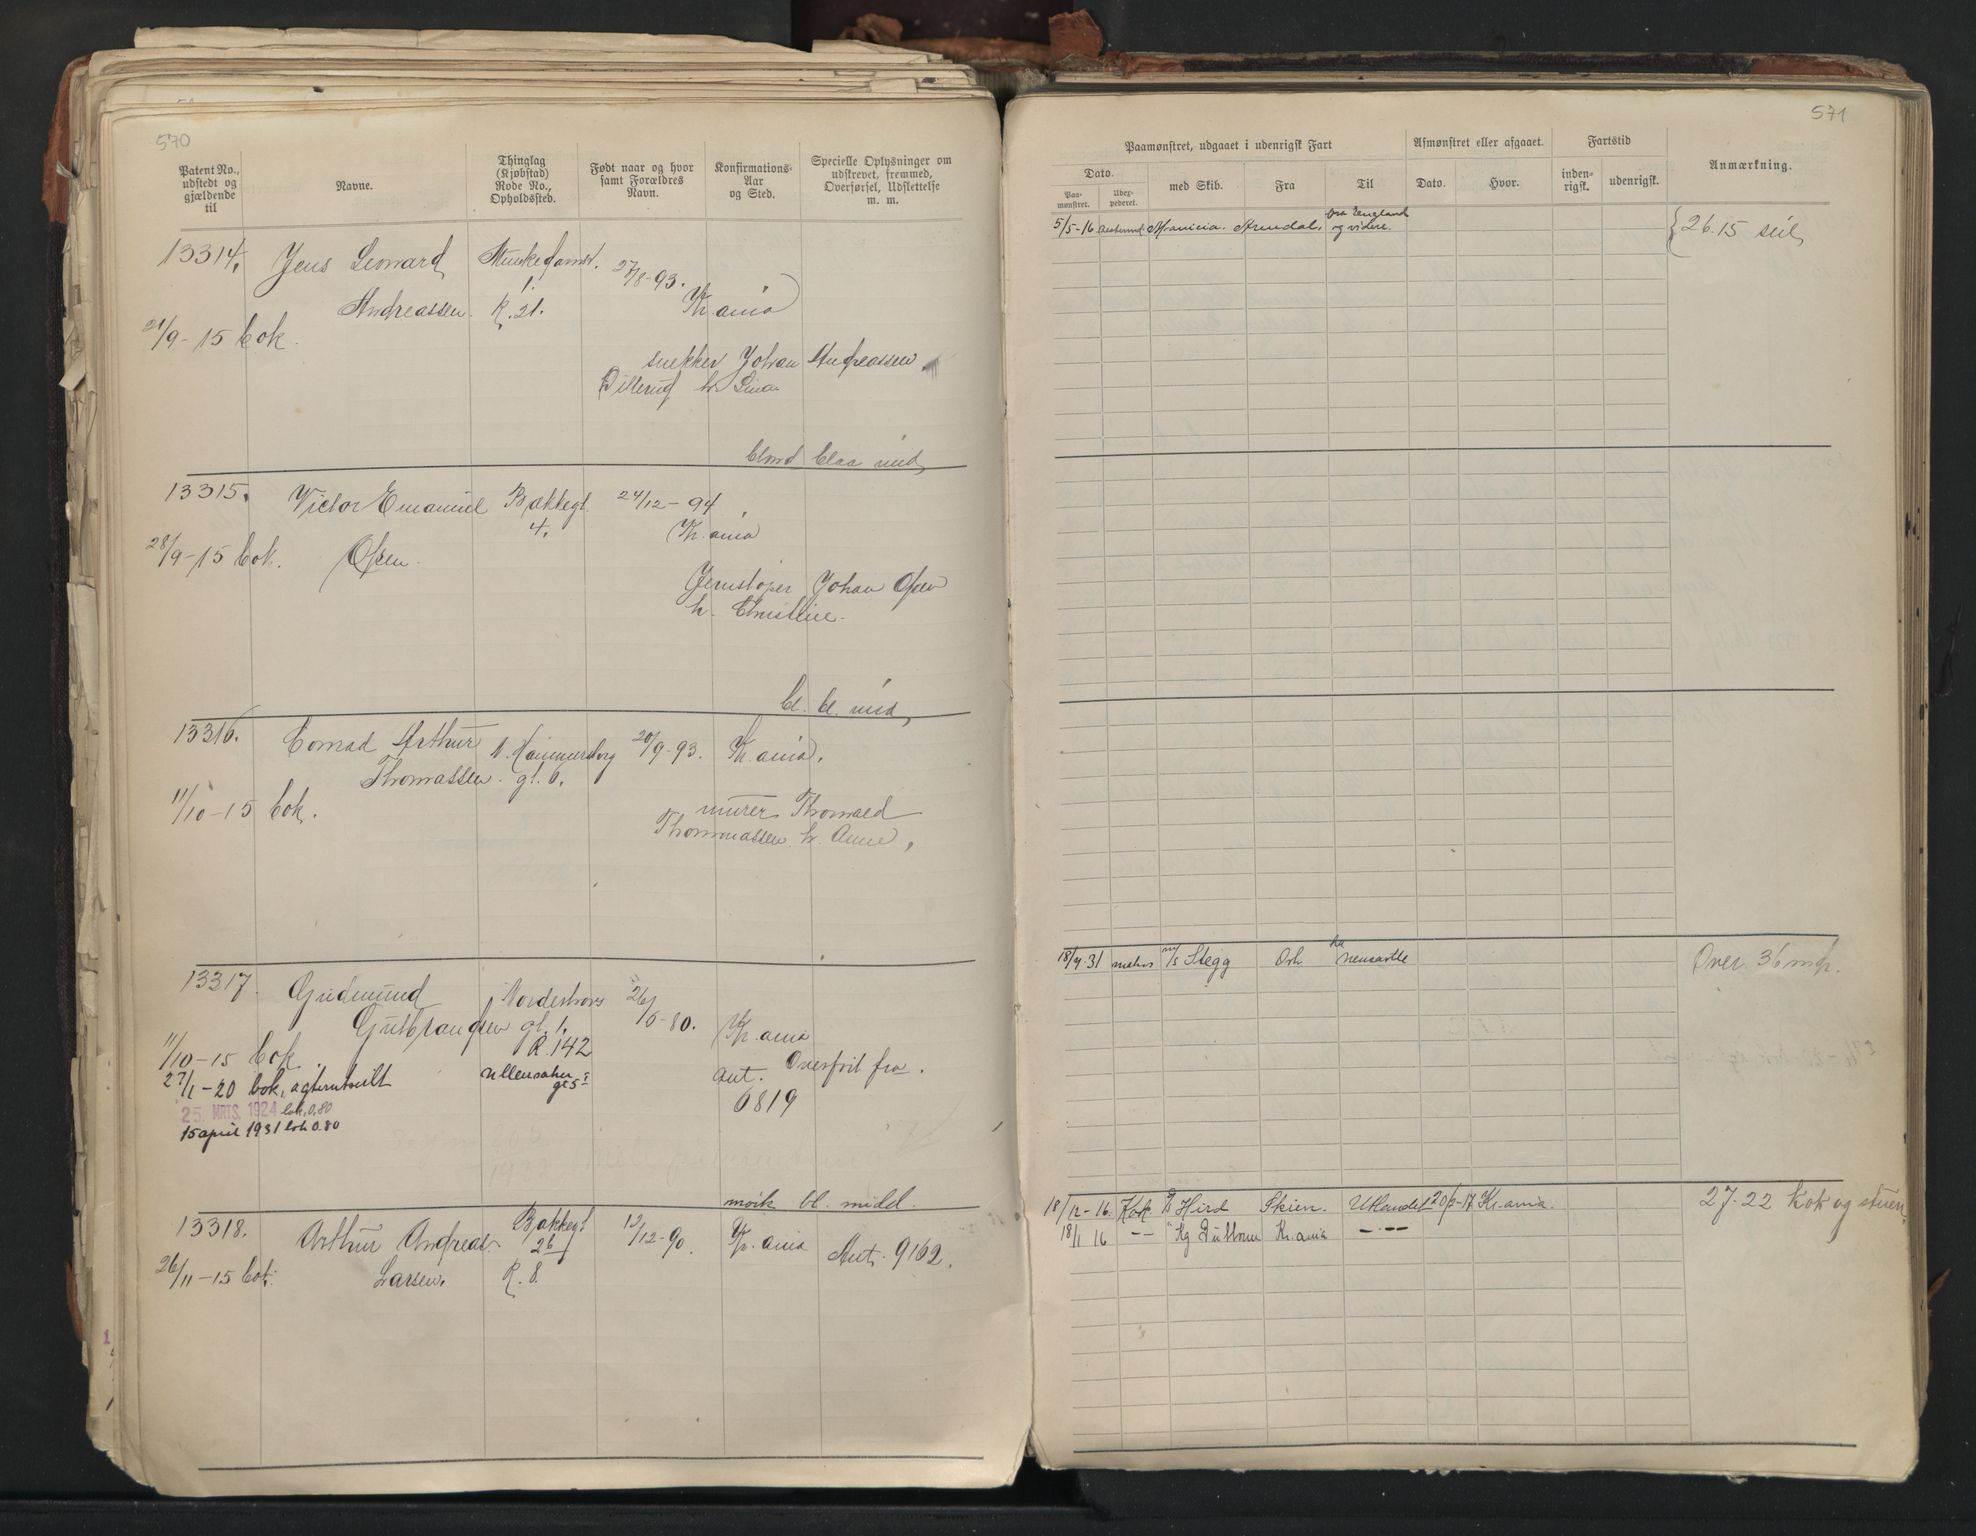 570
Patent No., udstedt og gjældende til
Navne.
Thinglag (Kjøbstad) Rode No., Opholdssted.
Født naar og hvor samt Forældres Navn.
Konfirmations-Aar og Sted.
Specielle Oplysninger om udskrevet, fremmed, Overførsel, Udslettelse m. m.
13314. Jens Leonard Munkedamsv.
27/8-93.
Andreassen R. 21. Kr.ania
21/9-15 bok.
snekker Johan Andreassen
Dillerud h. Lina
blond blaa mid
13315. Victor Emanuel Bakkegt. 24/12-94
4. Kr.ania
28/9-15 bok. Olsen.
Jernstøper Johan Olsen
h. Christine.
bl. bl. mid
13316. Conrad Arthur N. Hammersborg 20/9-93. Kr.ania.
Thomassen. gt. 6.
11/10-15 bok.
murer Thorvald
Thommassen h. Anne,
13317. Gudmund 26/6-80.
Gutbrandsen gt. 1. Kr.ania
R. 142
11/10-15 bok Overført fra
27/1-20 bok, agterutseilt Ullensaker gt 5 Aut. 6819
25. MRTS. 1924 bok, 0,80
15 april 1931 bok 0.80
mørk bl. midd.
13318. Arthur Andreas Bakkegt 12/12-90. Kr.ania Aut. 9162.
26
26/11-15 bok. Larsen. R. 8.
571
Paamønstret, udgaaet i udenrigsk Fart
Afmønstret eller afgaaet.
Fartstid
Anmærkning.
Dato.
Paa-mønstret.
Uder-pederet.
med Skib.
Fra
Til
Dato.
Hvor.
inden-rigsk.
udenrigsk.
5/5-16 Arendal, England og videre. 26.15 seil
18/4-31 m/s Stegg Over 36 mdr.
18/12-16. Kok Hird Skien. Utlandet 20/2-17 Kr.ania. 27-22 Kok og stuer.
18/1 16 — " — Kg Guttorm Kr.ania — " —